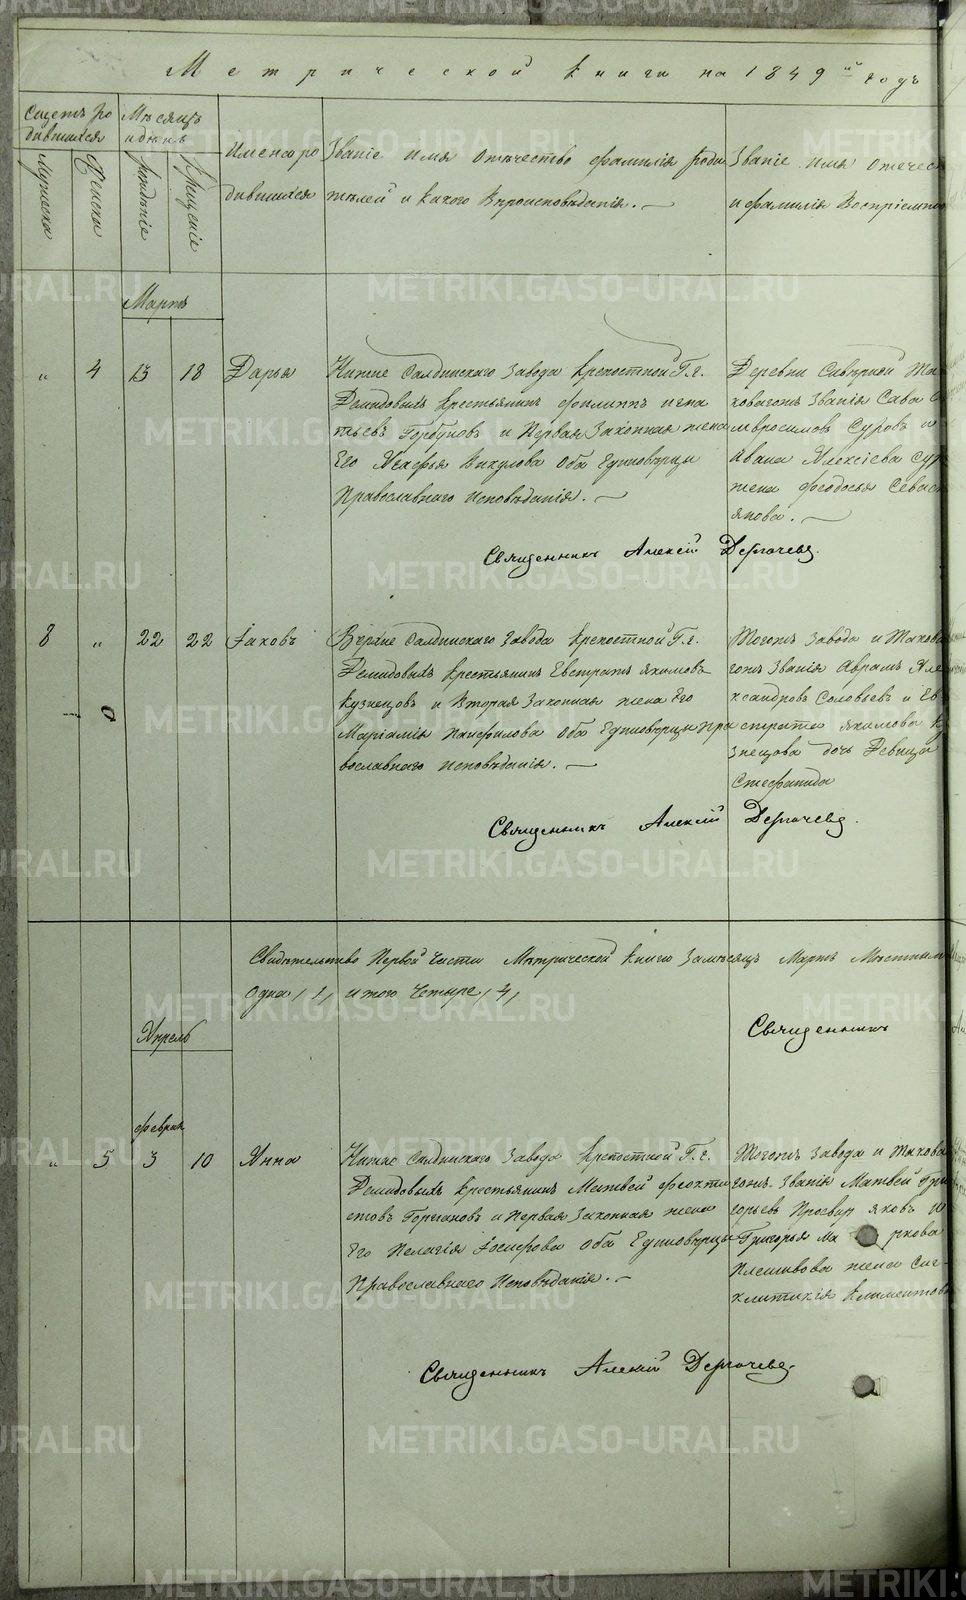 Метрической книги на 1849й годъ
Счетъ ро
дившихся
Мѣсяцъ
и день
Мужеска
Женска
рожденіе
Крещеніе
Имена ро
дившихся
Званіе имя отчество фамилія роди
телей и какого вѣроисповѣданія.
Званіе имя отечест
и фамилія Воспріемни
Мартъ
" 4 13 18 Дарья
Нижне Салдинскаго завода крепостной Г.г.
Демидовыхъ крестьянинъ Филиппъ Игна
тьевъ Горбуновъ и Первая Законная жена
Его Ксефья Викулова Оба Единовѣрцы
Православнаго исповѣданія.
Деревни Сѣверной Та
коваго же званія Сава
мвросимовъ Суровъ и
Ивана Алексіева Сур
жена Феодосья Севаст
янова.
Священникъ Алексій Дергачевъ.
8 " 22 22 Іаковъ
Верхне Салдинскаго завода крепостной Г.г.
Демидовыхъ крестьянинъ Евстратъ Якимовъ
Кузнецовъ и Вторая Законная жена Его
Маріамія Панфилова Оба Единовѣрцы Пра
вославнаго исповѣданія.
Тогожъ завода и Таковаго
гожъ Званія Аврамъ Але
ксандровъ Соловьевъ и Ев
страта Якимова Ку
знецова дочь Девица
Стефанида
Священникъ Алексій Дергачевъ.
Свидѣтельство Первой Части Метрической книги За месяцъ Мартъ
Одна /1/ итого Четыре /4/
Священникъ
Апрель
Февраля
" 5 3 10 Анна
Нижне Салдинскаго завода крепостной Г.г.
Демидовыхъ крестьянинъ Матвей Феокти
стовъ Горчаковъ и Первая Законная жена
Его Пелагія Іосифова Оба Единовѣрцы
Православнаго Исповѣданія.
Тогожъ завода и Таковаго
гожъ Званія Матвей Гри
горьевъ Просвиряковъ и
Григорья Ма ркова
Плешивова жена Син-
клитикія Климентова
Священникъ Алексій Дергачевъ.
METRIKI.GASO-URAL.RU